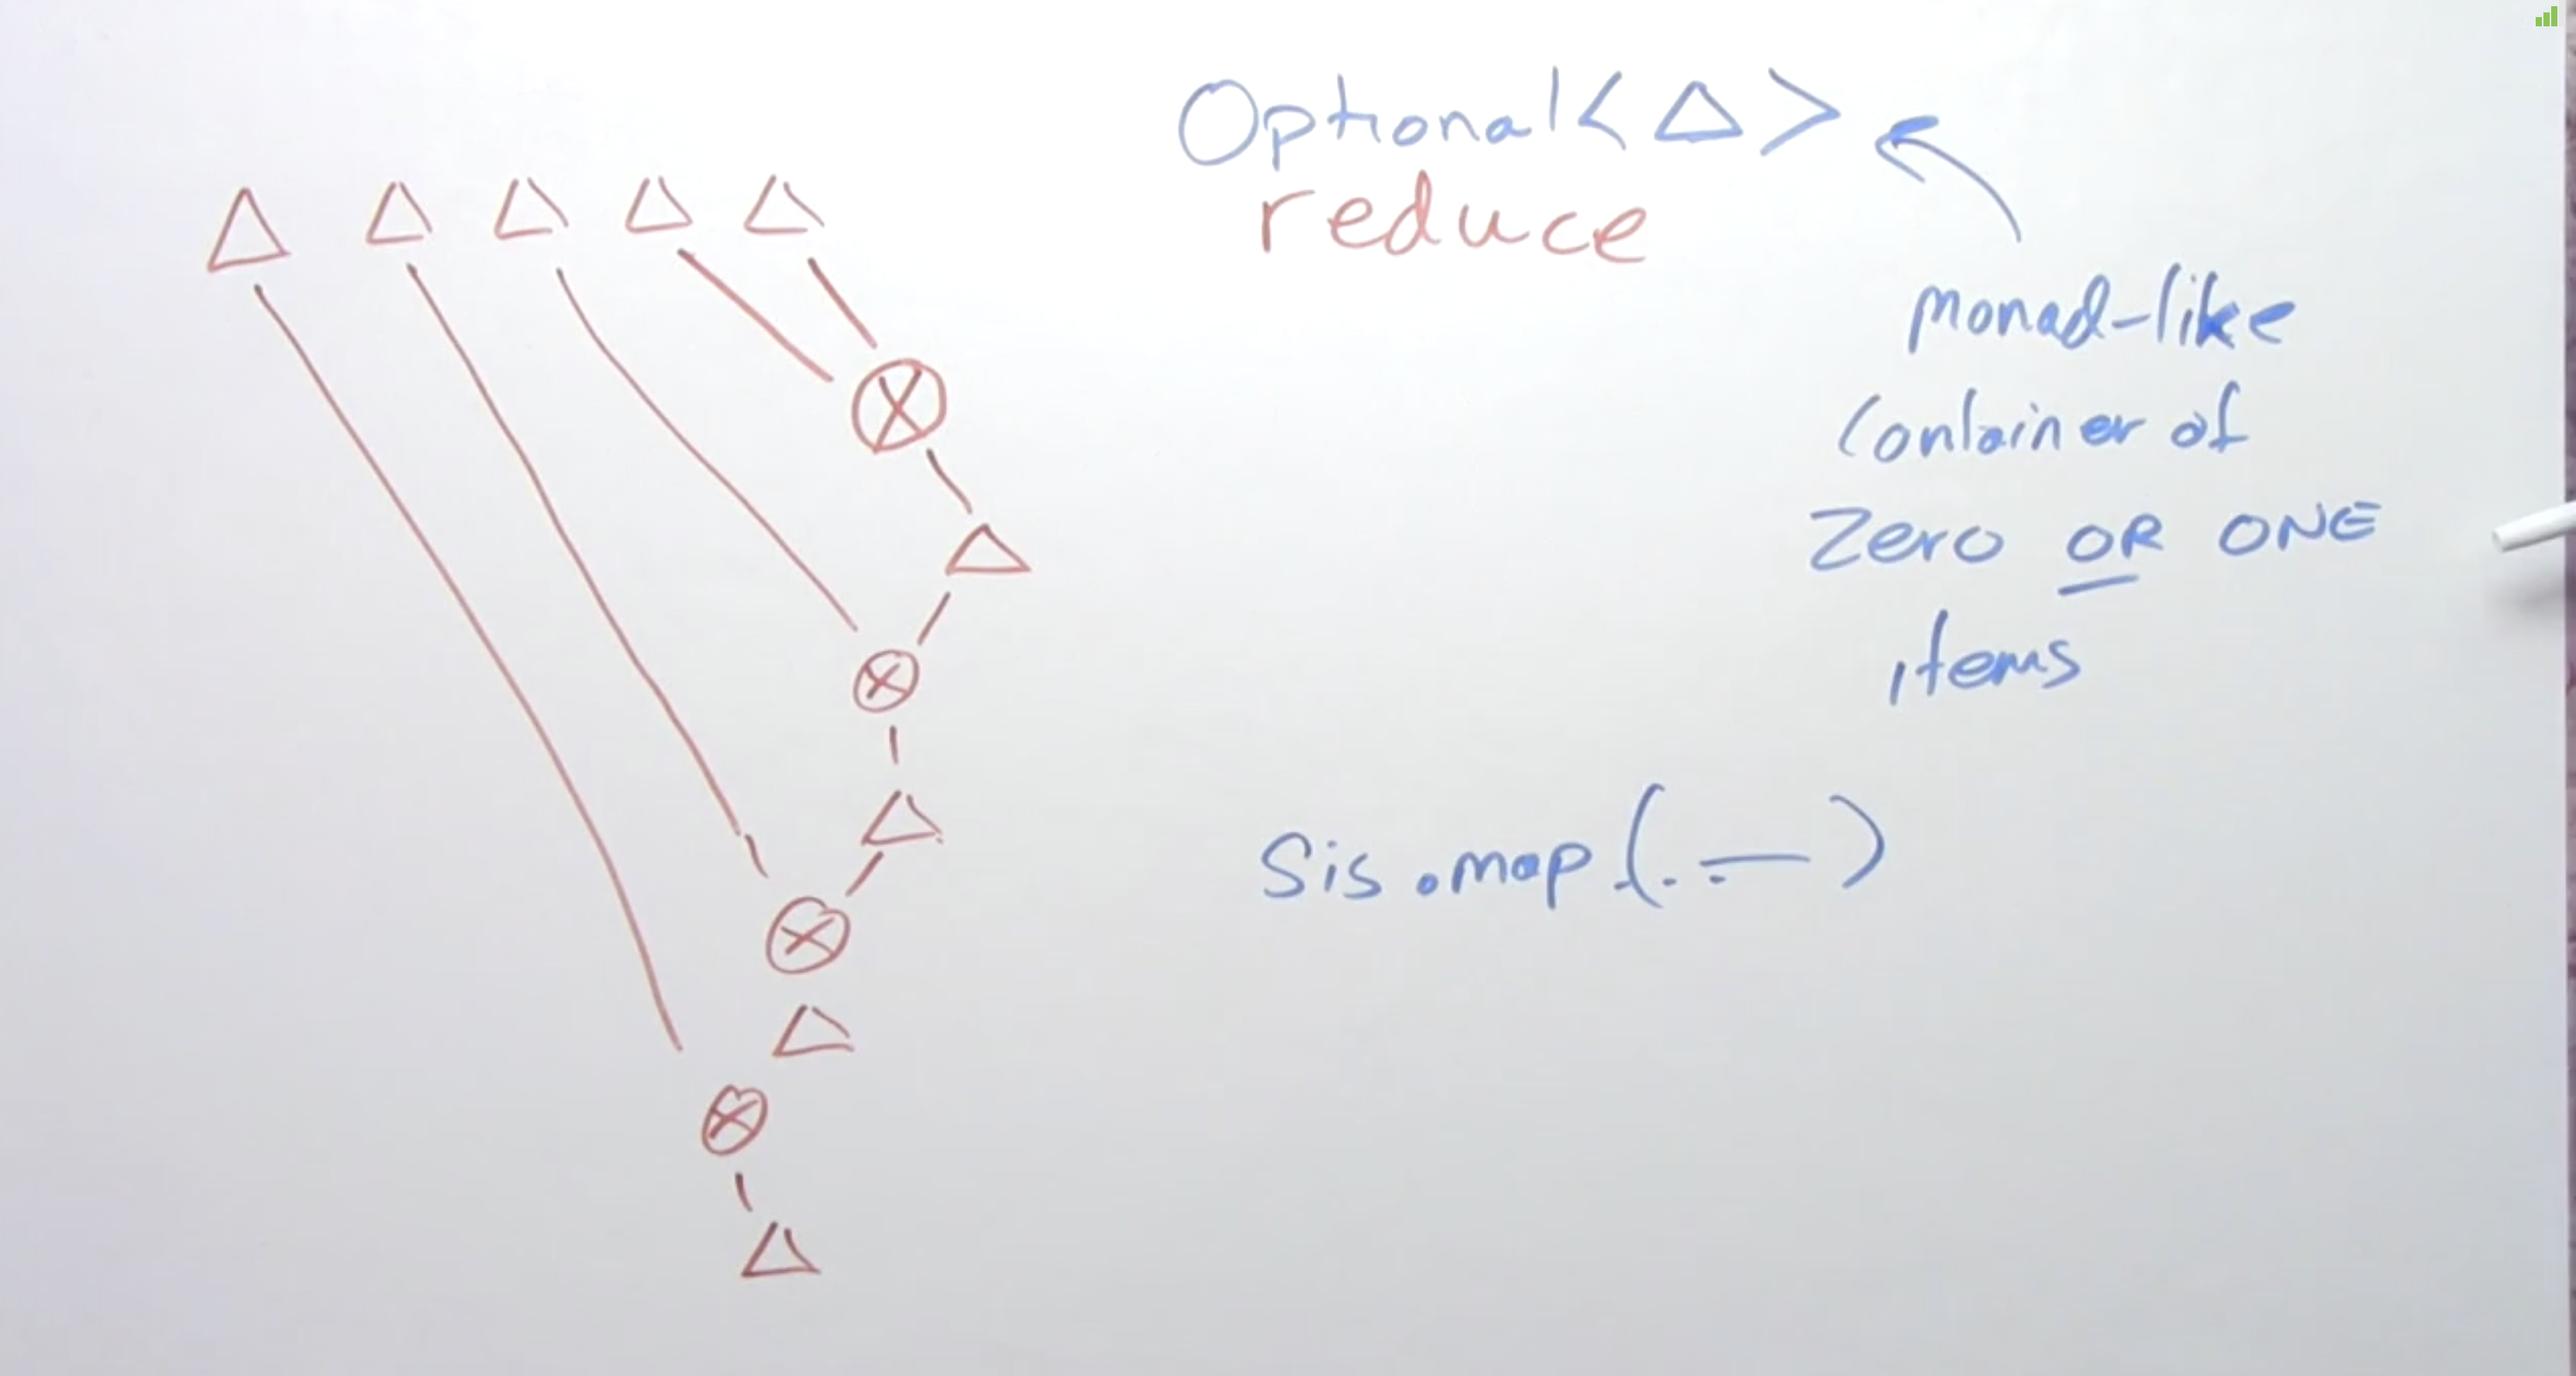 Optional<△>
reduce
monad-like
Container of
Zero OR ONE
items
Sis.map(. —)